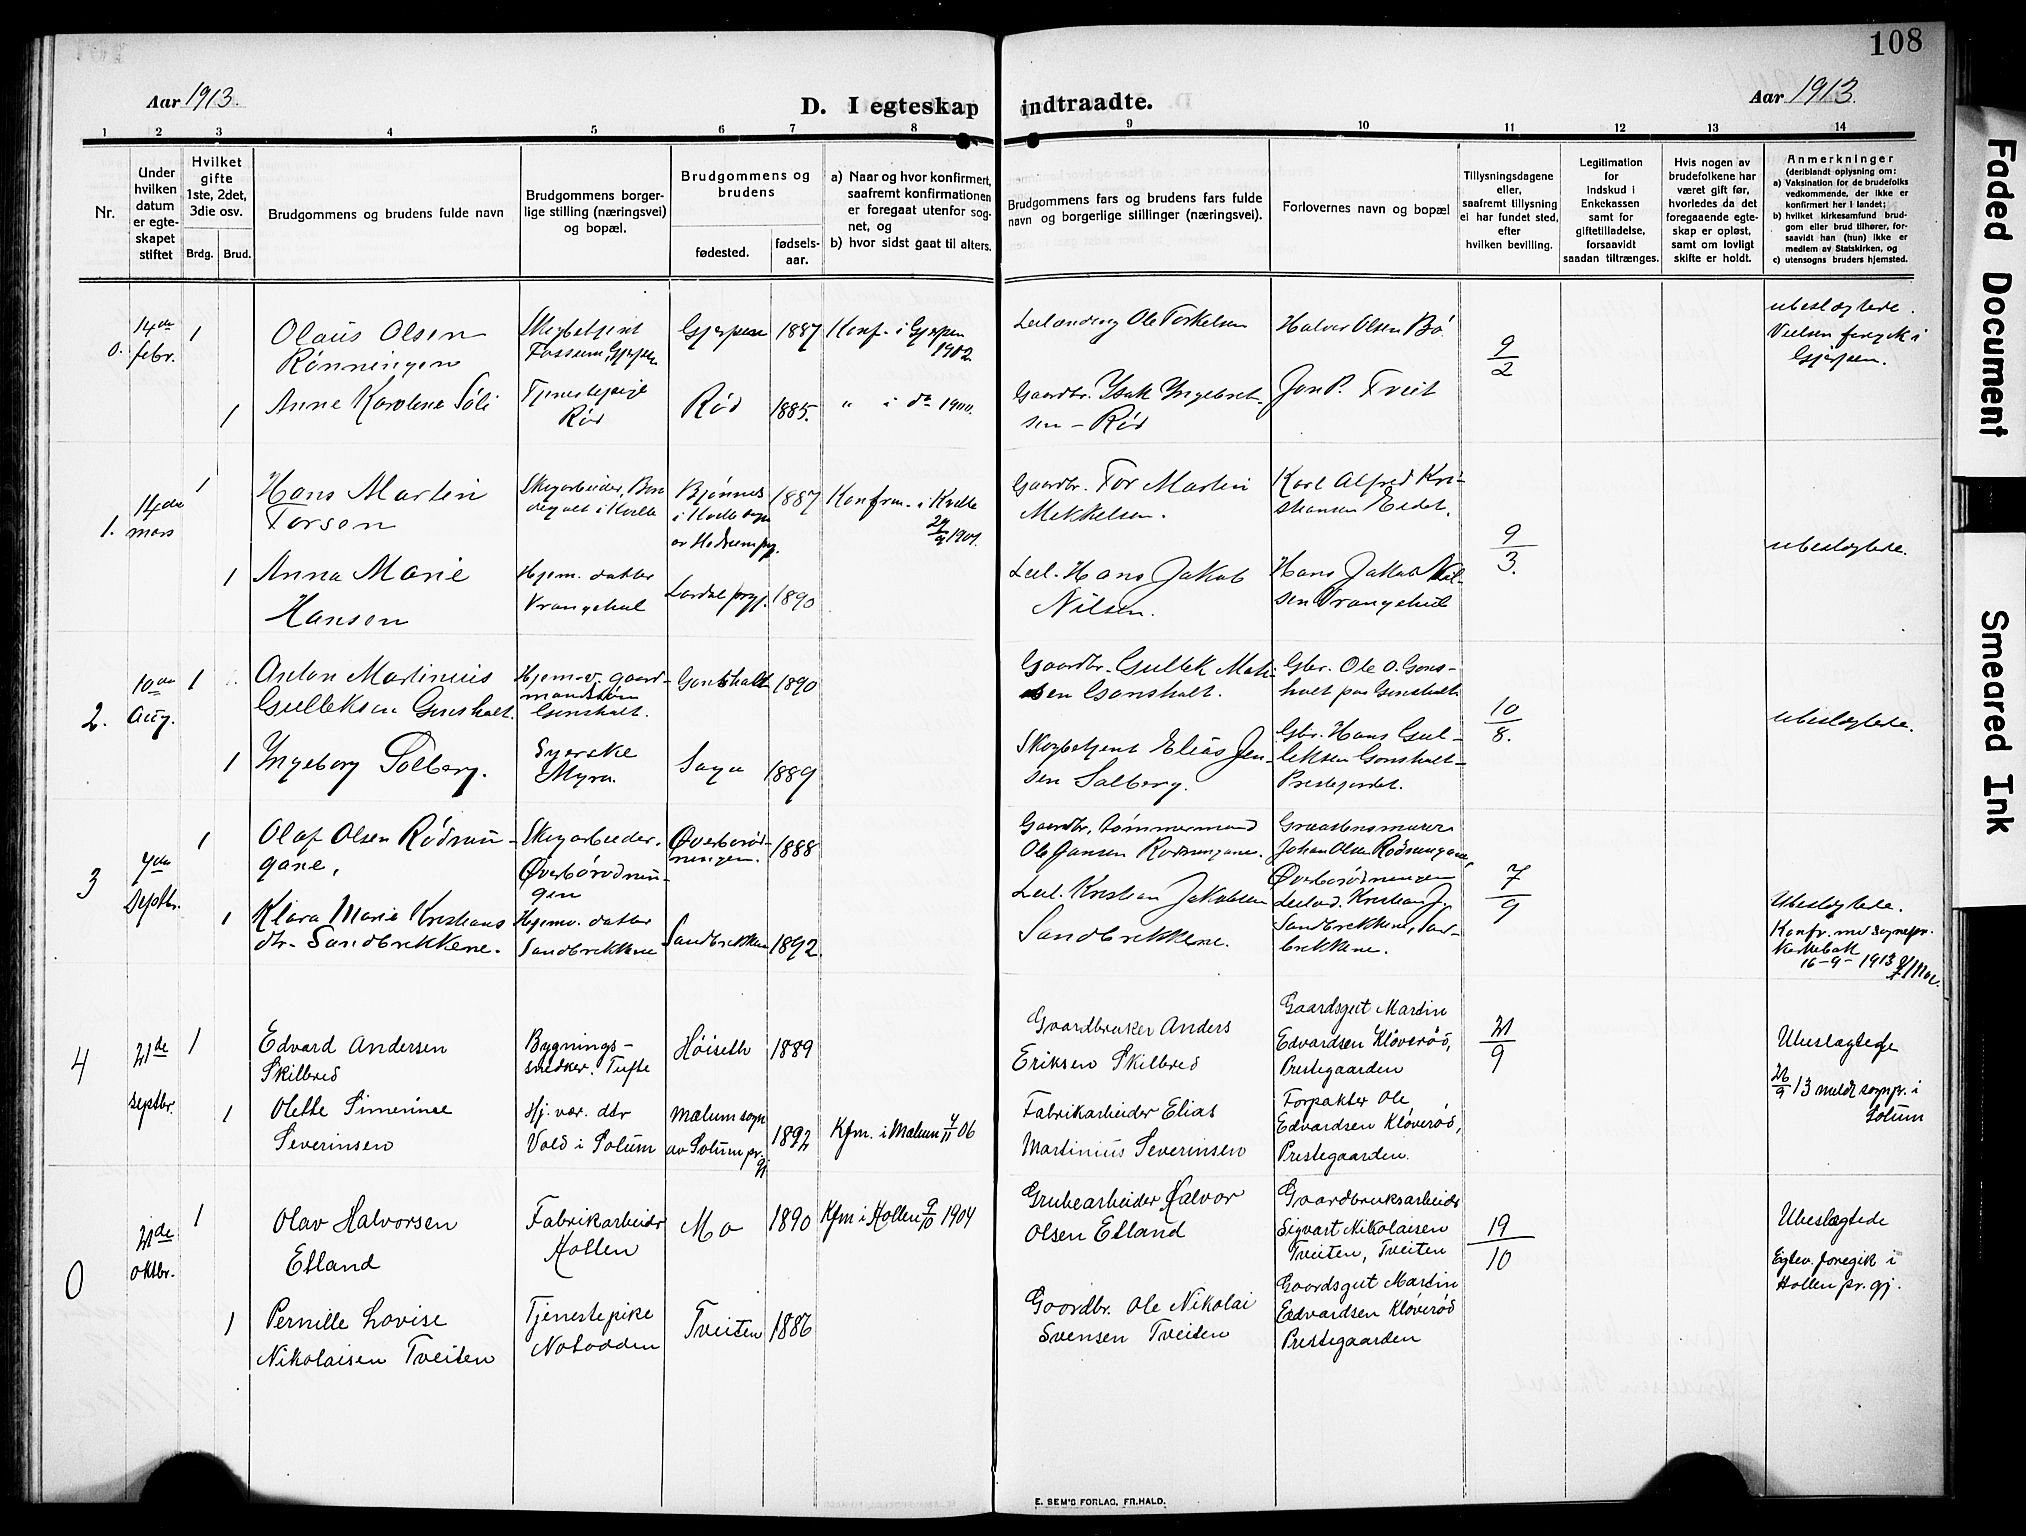 108
Aar 1913.
D. I egteskap indtraadte.
Aar 1913.
1 2 3 4 5 6 7 8 9 10 11 12 13 14
Nr.
Under
hvilken
datum
er egte-
skapet
stiftet
Hvilket
gifte
1ste, 2det,
3die osv.
Brdg. Brud.
Brudgommens og brudens fulde navn
Brudgommens borger-
lige stilling (næringsvei)
og bopæl.
Brudgommens og
brudens
fødested.
fødsels-
aar.
a) Naar og hvor konfirmert,
saafremt konfirmationen
er foregaat utenfor sog-
net, og
b) hvor sidst gaat til alters.
Brudgommens fars og brudens fars fulde
navn og borgerlige stillinger (næringsvei).
Forlovernes navn og bopæl
Tillysningsdagene
eller,
saafremt tillysning
ei har fundet sted,
efter
hvilken bevilling.
Legitimation
for
Indskud i
Enkekassen
samt for
giftetilladelse,
forsaavidt
saadan tiltrænges.
Hvis nogen av
brudefolkene har
været gift før,
hvorledes da det
foregaaende egte-
skap er opløst,
samt om lovligt
skifte er holdt.
Anmerkninger
(deriblandt oplysning om:
a) Vaksination for de brudefolks
vedkommende, der ikke er
konfirmert her i landet;
b) hvilket kirkesamfund brud-
gom eller brud tilhører, for-
saavidt han (hun) ikke er
medlem av Statskirken, og
c) utensogns bruders hjemsted.
0.
14de
febr.
1
Olaus Olsen
Rønningen
Skogbetjent
Fossum, Gjerpen
Gjerpen
1887
Konf. i Gjerpen
1902
Leilending Ole Torkelsen
Halvor Olsen Bø
9/2
ubeslægtede.
Vielsen foregik i
Gjerpen.
1
Anne Karoline Isaksdtr.
Tjenestepige
Rød
Rød
1885.
" i do 1900.
Gaardbr. Isak Ingebret-
sen - Rød
Jon P. Tveit
1.
14de
mars
1
Hans Martin
Torsen
Skogarbeider,
i Kvelle
Bjønnes
i Kvelle sogn
av Hedrum prg.
1887
Konfrm. i Kvelle
1901.
Gaardbr. Tor Martin
Mikkelsen.
Karl Alfred Kri-
stiansen Eidet.
9/3.
ubeslægtede.
1
Anna Marie
Hansen
Hjem. datter
Vrangehul
Lardal prgj.
1890
Leil. Hans Jakob
Nilsen.
Hans Jakob Nil-
sen Vrangehul
2.
10de
Aug.
1
Anton Martinius
Gulleksen Gonsholt.
Hjemv. gaard-
mandssøn
Gonsholt.
Gonsholt
1890
Gaardbr. Gullek Mati-
sen Gonsholt.
Gbr. Ole O. Gons-
holt paa Gonsholt
10/8.
ubeslægtede.
1
Ingeborg Solberg.
Syerske
Myra.
Saga
1889
Skogbetjent Elias Jen-
sen Solberg.
Gbr. Hans Gul-
leksen Gonsholt-
Prestejordet.
3
7de
Septbr.
1
Olaf Olsen Rødsun-
gane,
Skogarbeider.
Øverbørødnin-
gen
Øverbørød-
ningen.
1888
Gaardbr., tømmermand
Ole Jansen Rødsungane.
Graastensmurer
Johan Olsen Rødsungane,
Øverbørødningen
7/9
1
Klara Marie Kristians
dtr. Sandbrekkene.
Hjemv. datter
Sandbrekkene
Sandbrekken
1892.
Leil. Kristian Jakobsen
Sandbrekkene.
Leilend. Kristian J.
Sandbrekkene, Sand-
brekkene.
Ubeslægtede.
Konfr. med sognepr.
16-9-1913
4
21de
septbr.
1
Edvard Andersen
Skilbred
Bygnings-
snedker. Tufte
Høiseth
1889
Gaardbruker Anders
Eriksen Skilbred
Gaardsgut Martin
Edvardsen Kløverød,
Prestegaarden
21/9
Ubeslægtede
26/9 13 meldt sognpr. i
Solum
1
Olette Simenine
Severinsen
Hj. vær. dtr
Vold i Solum
Mælum sogn
av Solum pr.
gj
1892
Kfm. i Mælum 4/11 06
Fabrikarbeider Elias
Martinius Severinsen
Forpakter Ole
Edvardsen Kløverød,
Prestegaarden.
0
21de
oktbr.
1
Olav Halvorsen
Etland
Fabrikarbeider
Hollen
Mo
1890
Kfm i Hollen 9/10 1904
Grubearbeider Halvor
Olsen Etland
Gaardbruksarbeider
Sigvart Nikolaisen
Tveiten, Tveiten
19/10
Ubeslægtede
Egtev. foregik i
Hollen pr. gj.
1
Pernille Lovise
Nikolaisen Tveiten
Tjenestepike
Notodden
Tveiten
1886
Gaardbr. Ole Nikolai
Svensen Tveiten
Gaardsgut Martin
Edvardsen Kløverød
Prestegaarden
E. SEM'S FORLAG, FR.HALD.
Faded Document
Smeared Ink